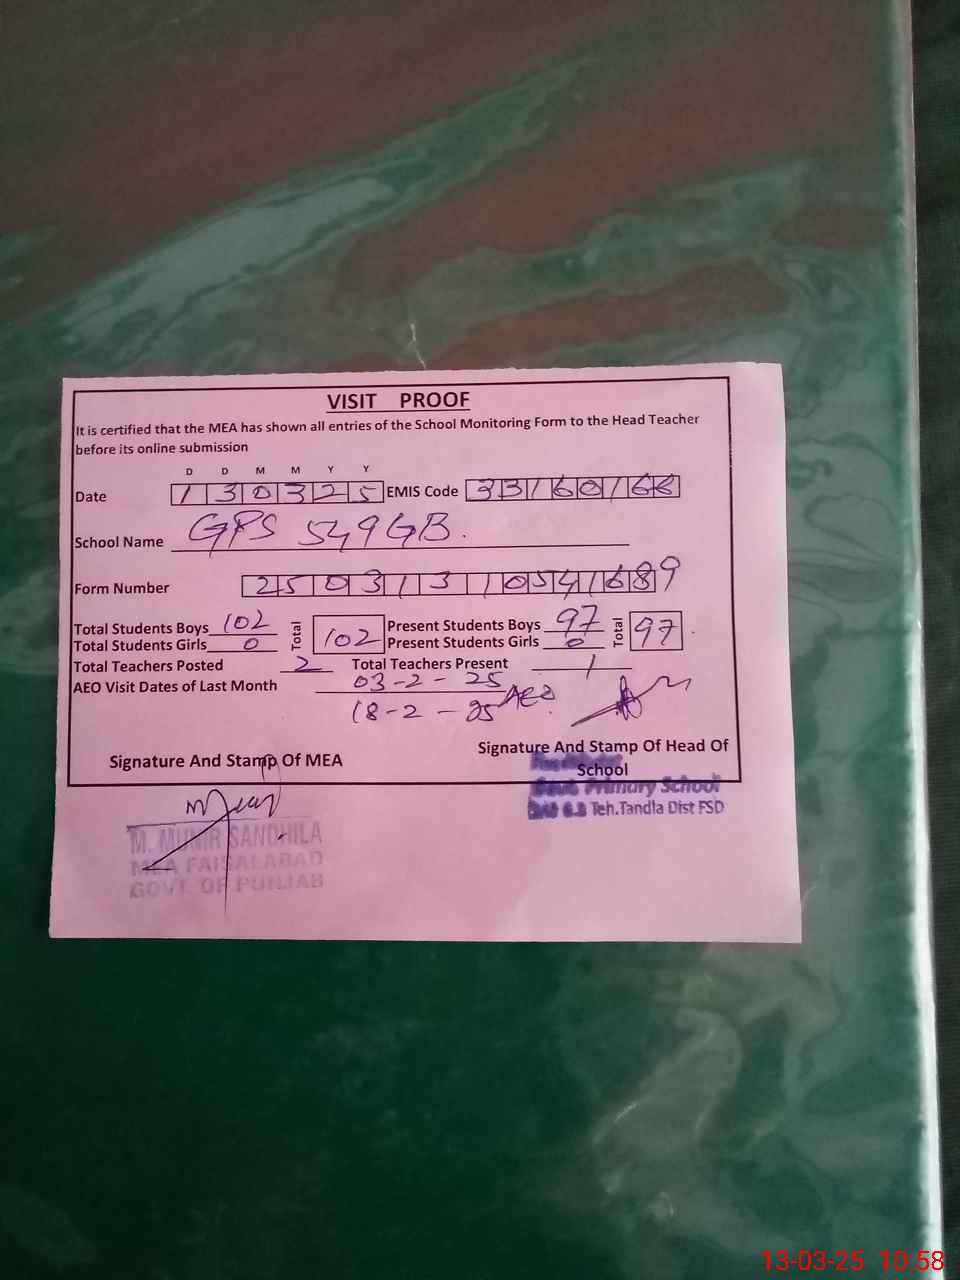 VISIT PROOF
It is certified that the MEA has shown all entries of the School Monitoring Form to the Head Teacher
before its online submission
D D M M Y Y
Date 130325 EMIS Code 33160166
School Name GPS 549GB.
Form Number 2503131054168 9
Total Students Boys 102 Total 102 Present Students Boys 97 Total 97
Total Students Girls 0 Present Students Girls 0
Total Teachers Posted 2 Total Teachers Present 1
AEO Visit Dates of Last Month 03-2-25
18-2-25 AEO
Signature And Stamp Of MEA
Signature And Stamp Of Head Of
School
Govt. Primary School
G.B Teh.Tandla Dist FSD
M. MUNIR SANDHILA
MEA FAISALABAD
GOVT. OF PUNJAB
13-03-25 10:58